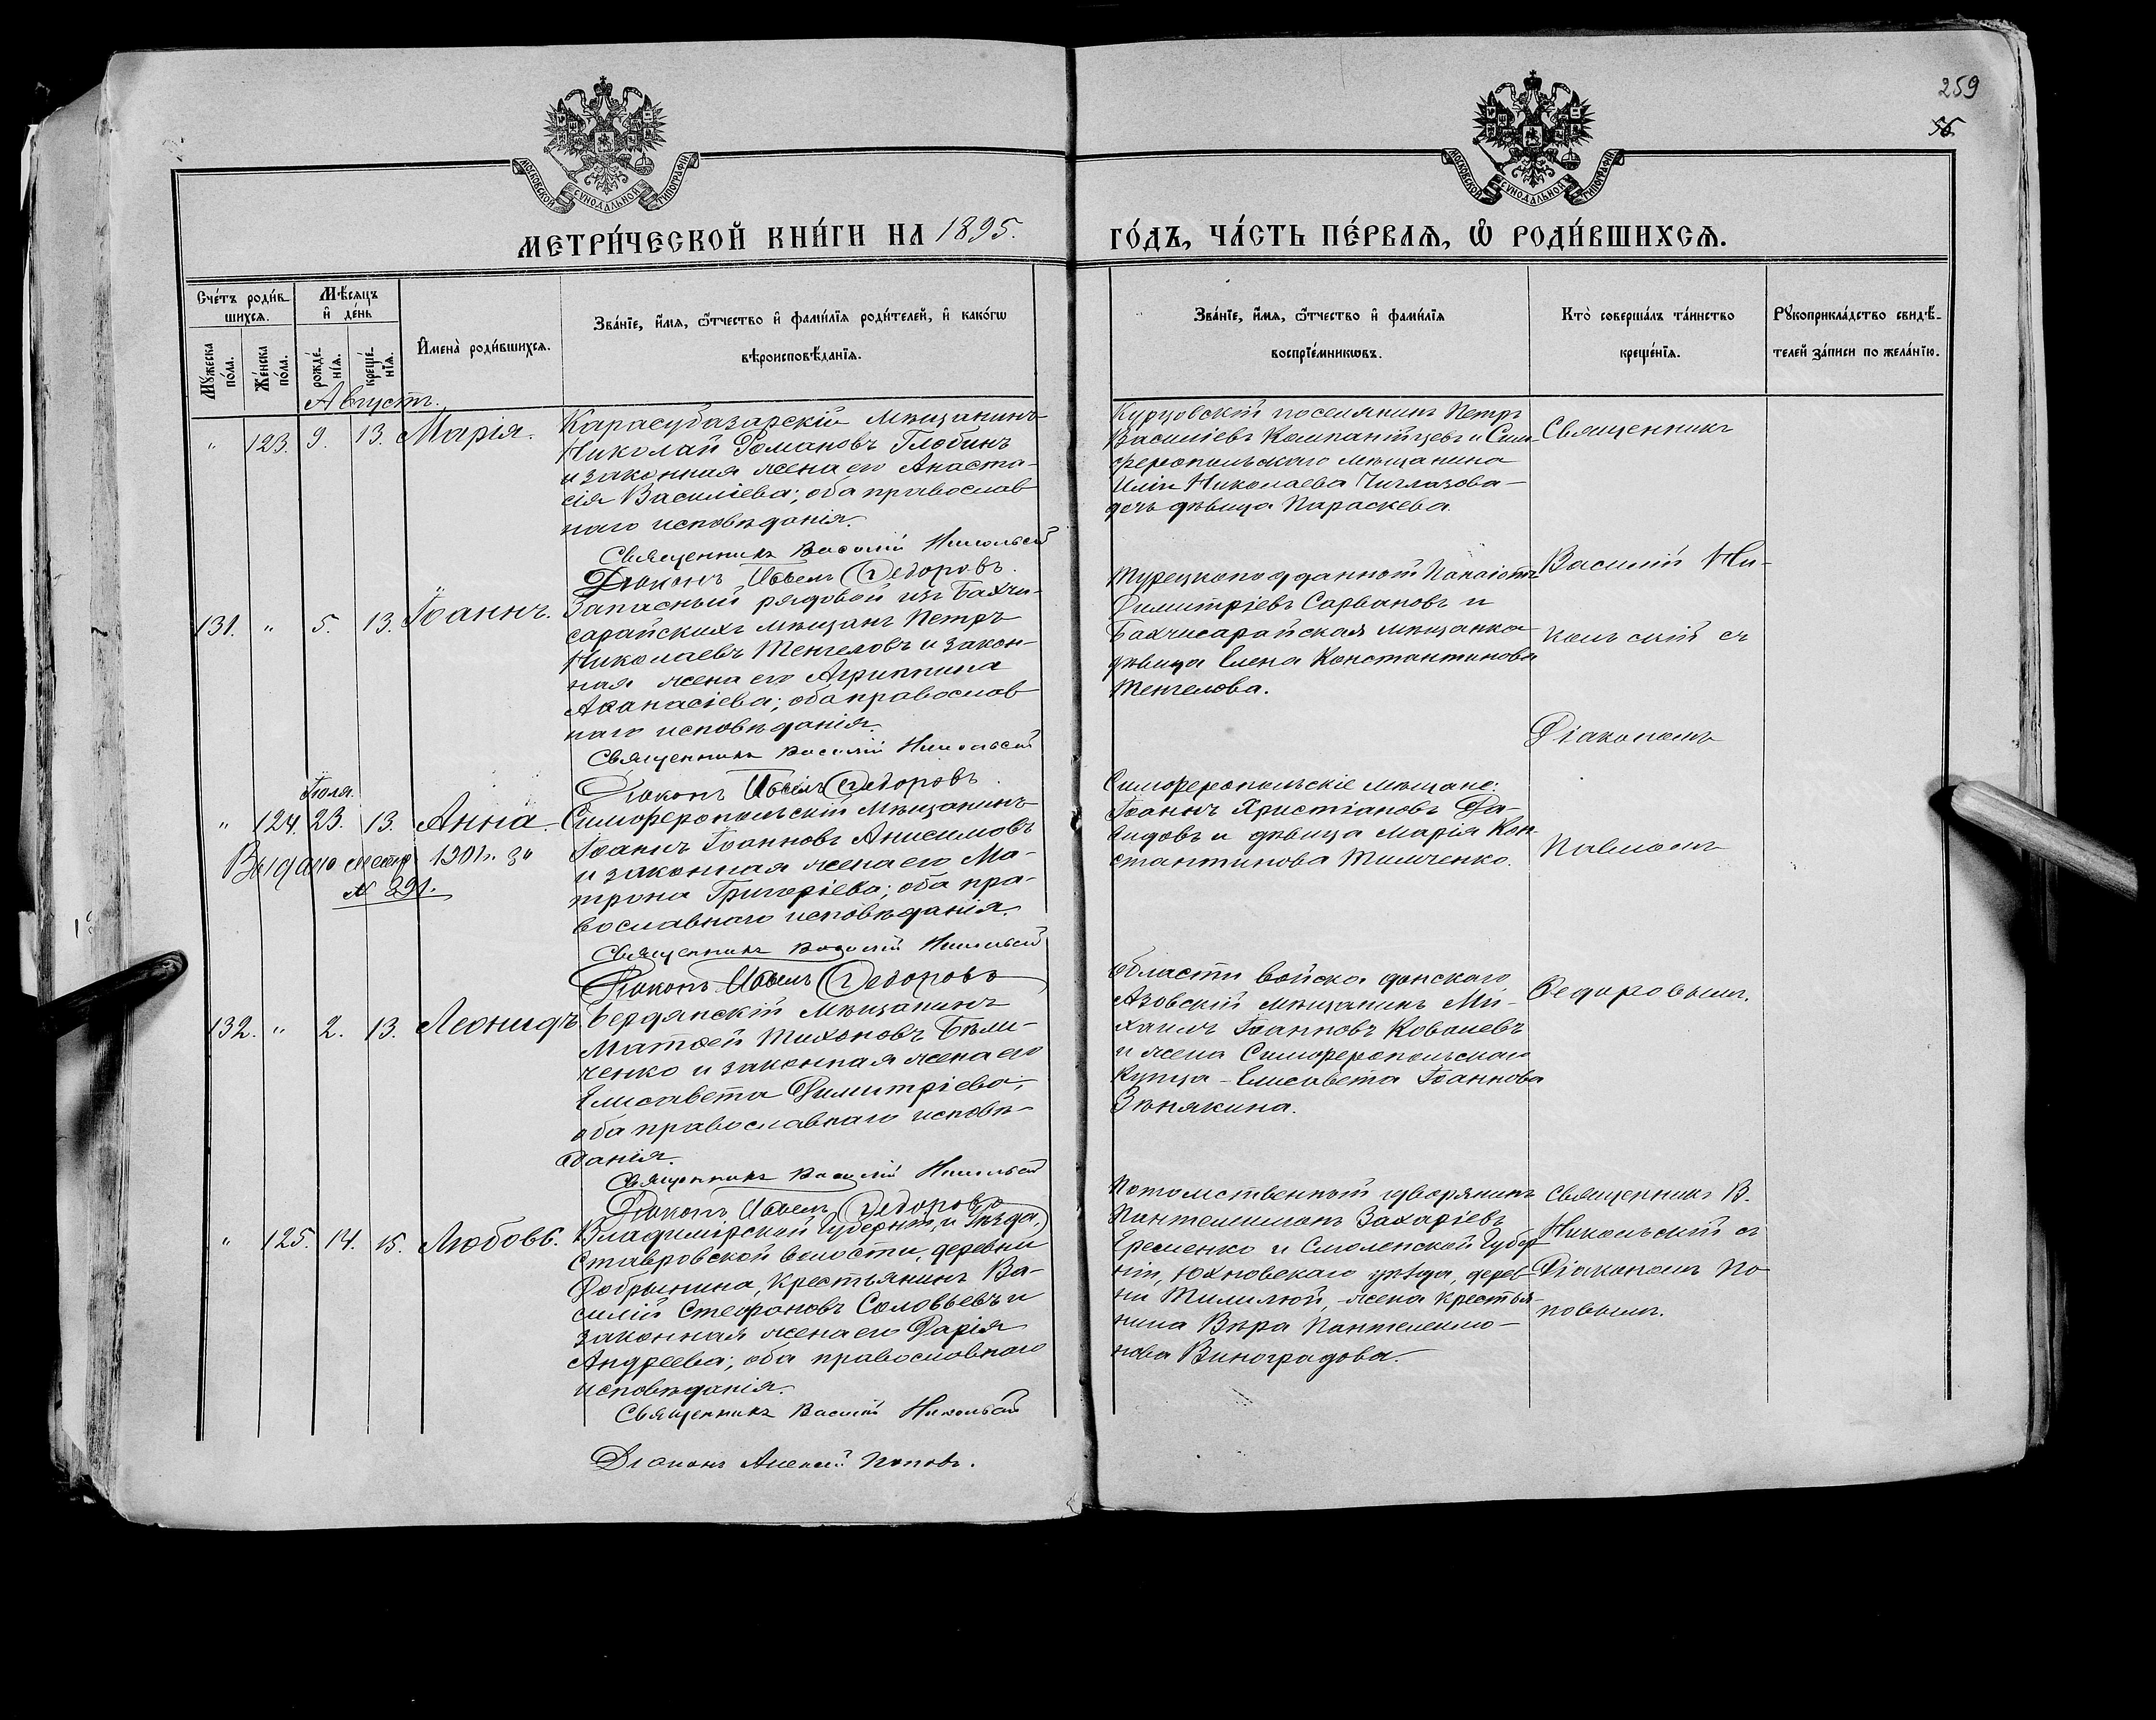 259
56
МОСКОВСКОЙ СѴНОДАЛЬНОЙ ТИПОГРАФІИ
МОСКОВСКОЙ СѴНОДАЛЬНОЙ ТИПОГРАФІИ
МЕТРИ́ЧЕСКОЙ КНИ́ГИ НА 1895.
ГО́ДЪ, ЧА́СТЬ ПЕ́РВАѦ, Ѡ҆ РОДИ́ВШИХСѦ.
Сче́тъ роди́в-
шихсѧ.
Мꙋ́жеска по́ла.
Же́нска по́ла.
Мѣ́сѧцъ
и҆ де́нь
рожде́-
нїѧ.
креще́-
нїѧ.
И҆мена̀ роди́вшихсѧ.
Зва́нїе, и҆́мѧ, ѻ҆́тчество и҆ фами́лїѧ роди́телей, и҆ како́гѡ
вѣроисповѣ́данїѧ.
Зва́нїе, и҆́мѧ, ѻ҆́тчество и҆ фами́лїѧ
воспрїе́мникѡвъ.
Кто̀ соверша́лъ та́инство
креще́нїѧ.
Рꙋкоприкла́дство свидѣ́-
телей за́писи по жела́нїю.
Августъ.
" 123. 9. 13. Марія.
Карасубазарскій мѣщанинъ
Николай Романовъ Глобинъ
и законная жена его Анаста-
сія Василіева; оба православ
наго исповѣданія.
Священникъ Василій Никольскій
Діаконъ Павелъ Ѳедоровъ.
Курцовскій поселянинъ Петръ
Василіевъ Компантіцевъ и Сим-
феропольскаго мѣщанина
Иліи Николаева Чиглазова-
дочь дѣвица Параскева.
Священникъ
131. " 5. 13. Іоаннъ.
Запасный рядовой изъ Бахчи-
сарайскихъ мѣщанъ Петръ
Николаевъ Тенгеловъ и закон-
ная жена его Агриппина
Аѳанасіева; оба православ
наго исповѣданія.
Священникъ Василій Никольскій
Діаконъ Павелъ Ѳедоровъ.
Турецкоподданный Панаіотъ
Димитріевъ Сарвановъ и
Бахчисарайская мѣщанка
дѣвица Елена Константинова
Тенгелова.
Василій Ни-
кольскій съ
Діакономъ
Іюля.
" 124. 23. 13. Анна.
Выдано метр 1901 г. за
№ 291.
Симферопольскій мѣщанинъ
Іоаннъ Іоанновъ Анисимовъ
и законная жена его Ма-
трона Григоріева; оба пра-
вославнаго исповѣданія.
Священникъ Василій Никольскій
Діаконъ Павелъ Ѳедоровъ
Симферопольскіе мѣщане:
Іоаннъ Христіановъ Да-
видовъ и дѣвица Марія Кон-
стантинова Тимченко.
Павломъ
132. " 2. 13. Леонидъ
Бердянскій мѣщанинъ
Матѳей Тихоновъ Бѣли-
ченко и законная жена его
Елисавета Димитріева;
оба православнаго исповѣ-
данія.
Священникъ Василій Никольскій
Діаконъ Павелъ Ѳедоровъ
Области войска донскаго
Азовскій мѣщанинъ Ми-
хаилъ Іоанновъ Ковалевъ
и жена Симферопольскаго
купца - Елисавета Іоаннова
Зѣнякина.
Ѳедоровымъ.
" 125. 14. 15. Любовь.
Владимірской губерніи, и уѣзда,
Ставровской волости, деревни
Добрынина, крестьянинъ Ва-
силій Стефановъ Соловьевъ и
законная жена его Дарія
Андреева; оба православнаго
исповѣданія.
Священникъ Василій Никольскій
Діаконъ Алексій Поповъ.
Потомственный дворянинъ
Пантелеимонъ Захаріевъ
Еременко и Смоленской губер
ніи, Юхновскаго уѣзда, дерев-
ни жена крестья-
нина Вѣра Пантелеимо-
нова Виноградова.
Священникъ В.
Никольскій съ
Діакономъ По-
повымъ.